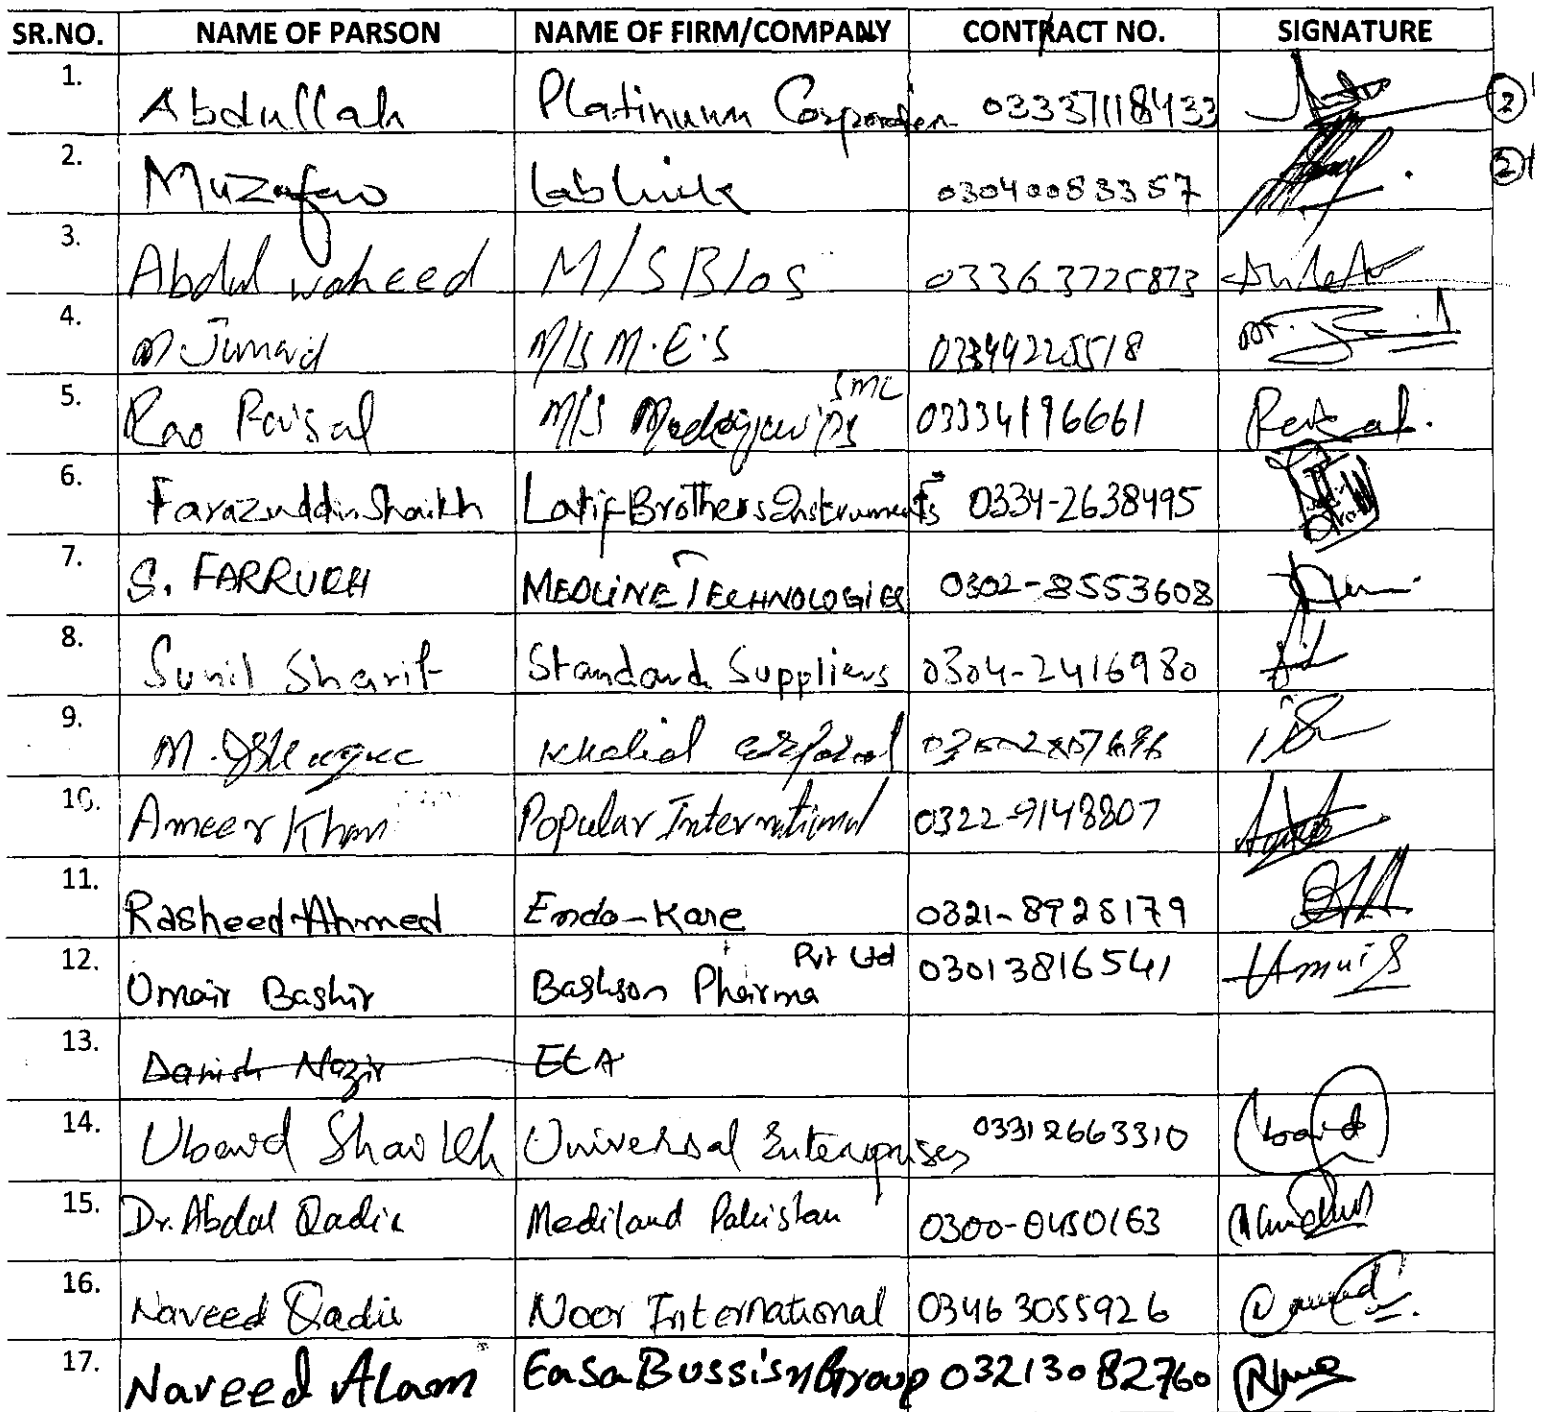 SR.NO. NAME OF PARSON NAME OF FIRM/COMPANY CONTRACT NO. SIGNATURE
1. Abdullah Platinum Corporation 03337118433 2
2. Muzafar Lablink 03040083357 2
3. Abdul waheed M/S Blos 03363725873
4. M. Junaid M/S M.E.S
5. Rao Faisal M/S SML 03334196661 Faisal.
6. Farazuddin Shaikh Latif Brothers Instruments 0334-2638495
7. S. FARRUKH MEDLINE TECHNOLOGIES 0302-8553608
8. Sunil Sharif Standard Suppliers 0304-2416980
9. M. Khalid
10. Ameer Khan Popular International 0322-9148807
11. Rasheed Ahmed Endo-Kare 0321-8928179
12. Omair Bashir Bashson Pharma Pvt Ltd 03013816541
13. Danish Nazir ECA
14. Ubaid Shaikh Universal Enterprises 03312663310 Ubaid
15. Dr. Abdal Qadir Mediland Pakistan 0300-0450163
16. Naveed Qadir Noor International 03463055926
17. Naveed Alam Easa Bussisn Group 03213082760